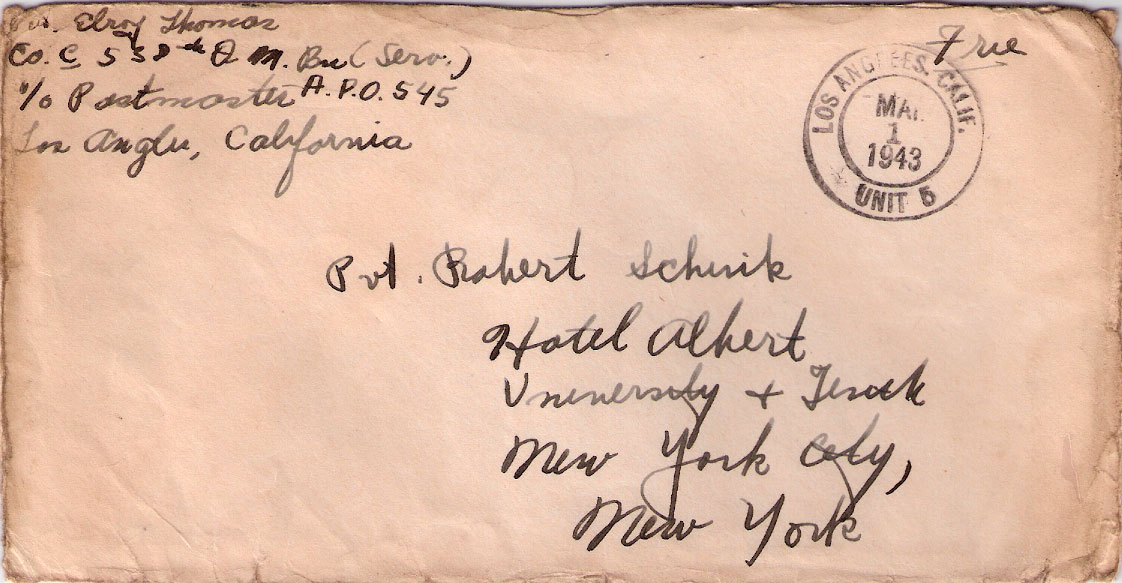 Pvt. Elroy Thomas
Co. C 558th Q. M. Bn (Serv.)
c/o Postmaster A.P.O. 545
Los Angles, California
Free
LOS ANGELES, CALIF.
MAR
1
1943
UNIT 5
Pvt. Robert Schuik
Hotel Albert
University + Tenth
New York City,
New York